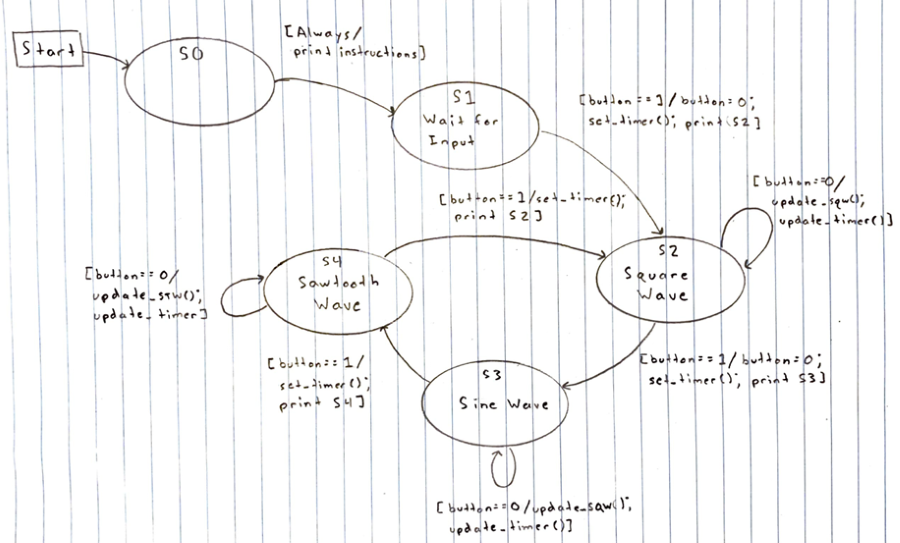 Start
S0
[Always/
print instructions]
S1
Wait for
Input
[button==1/button=0;
set_timer(); print S2]
[button==0/
update_sqw();
update_timer()]
[button==1/set_timer();
print S2]
S2
Square
Wave
S4
Sawtooth
Wave
[button==0/
update_stw();
update_timer]
[button==1/button=0;
set_timer(); print S3]
[button==1/
set_timer();
print S4]
S3
Sine Wave
[button==0/update_sqw();
update_timer()]